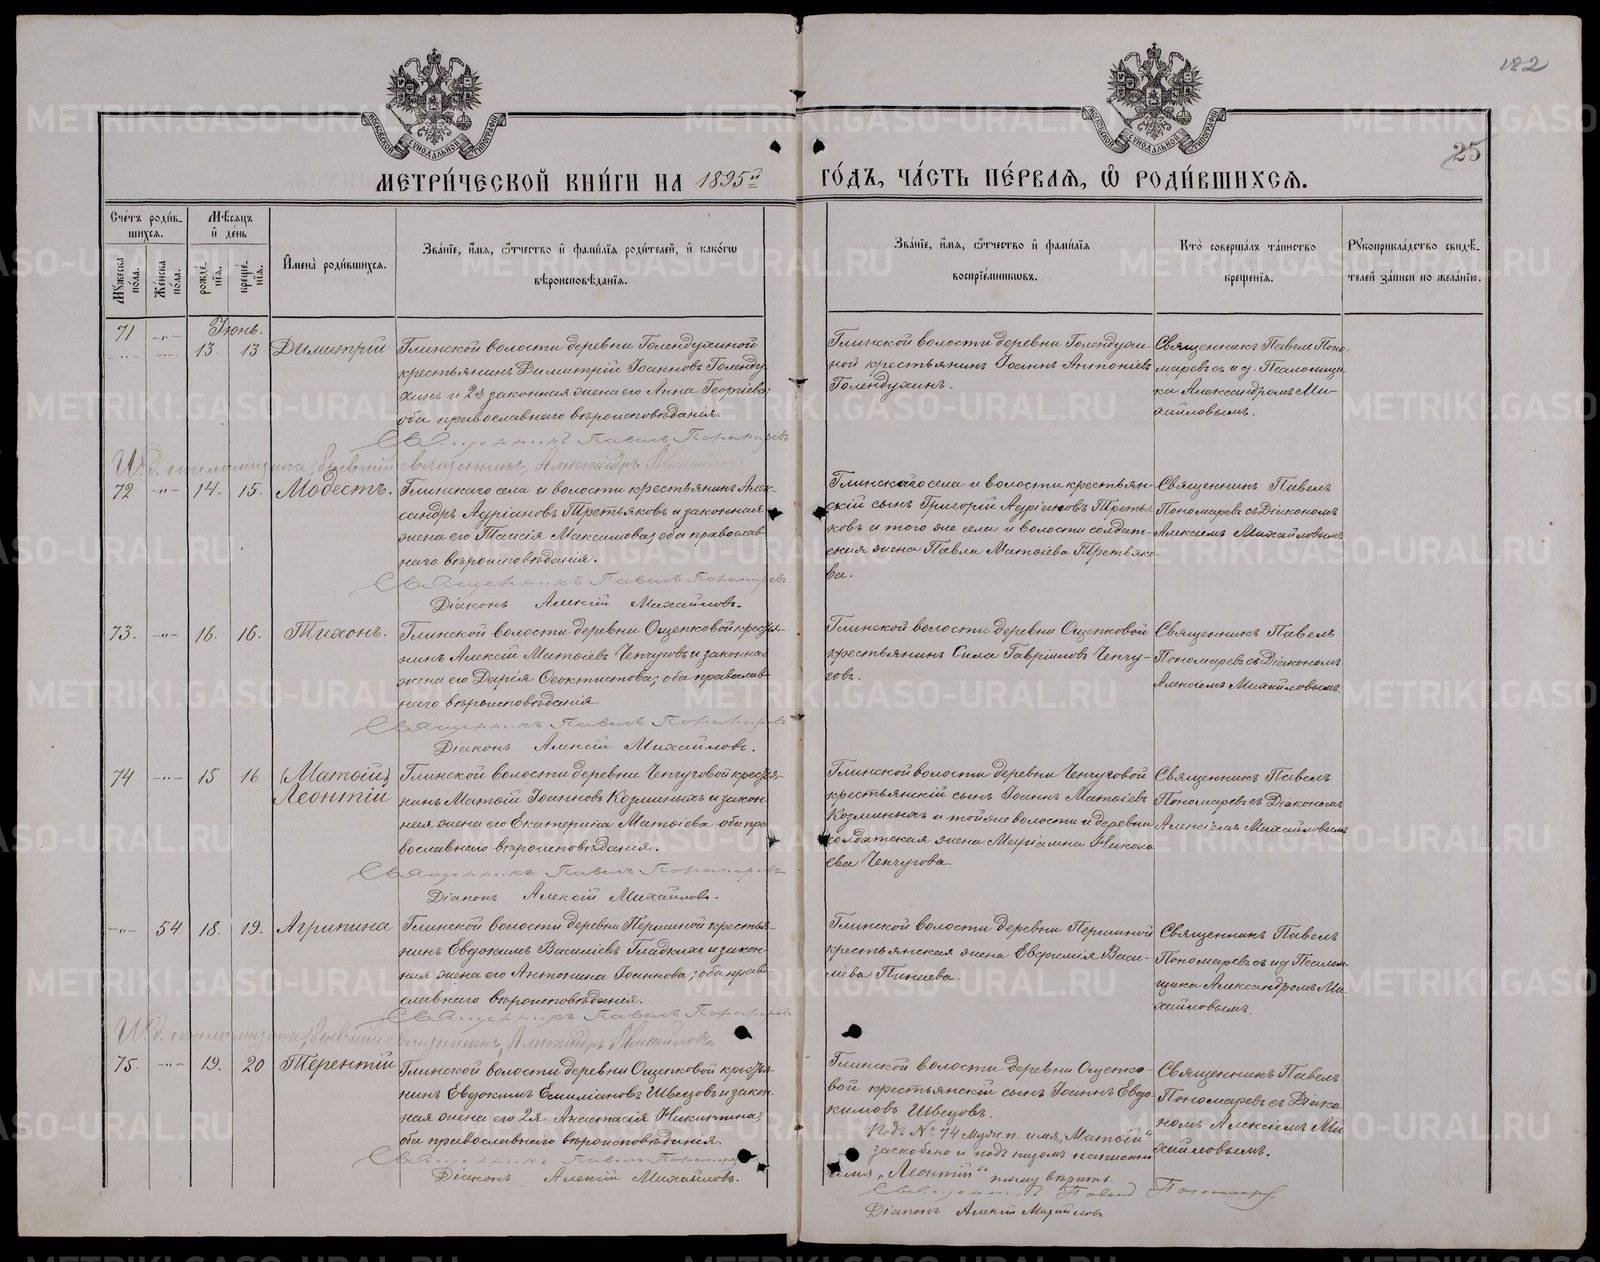 182
25
МЕТРИ́ЧЕСКОЙ КНИ́ГИ НА 1895й ГО́ДЪ, ЧА́СТЬ ПЕ́РВАЯ, Ѡ РОДИ́ВШИХСЯ.
Сче́тъ роди́в-
шихся.
Му́жеска по́ла.
Же́нска по́ла.
Мѣ́сяцъ
и де́нь
рожде́-
нїя.
креще́-
нїя.
Имена̀ роди́вшихся.
Зва́нїе, и́мя, о́тчество и фами́лїя роди́телей, и како́гѡ
вѣроисповѣ́данїя.
Зва́нїе, и́мя, о́тчество и фами́лїя
воспрїе́мникѡвъ.
Кто̀ соверша́лъ та́инство
креще́нїя.
Рꙋкоприкла́дство свидѣ́-
телей за́писи по жела́нїю.
Іюнь.
71 -"- 13. 13 Димитрій
Глинской волости деревни Голендухиной
крестьянинъ Димитрій Іоанновъ Голенду
хинъ и 2я законная жена его Анна Георгіева;
оба православнаго вѣроисповѣданія.
Священникъ Павелъ Пономаревъ
И. д. псаломщика, бывшій священникъ, Александръ Михайловъ
Глинской волости деревни Голендухи-
ной крестьянинъ Іоаннъ Антоніевъ
Голендухинъ.
Священникъ Павелъ Поно-
маревъ съ и д. Псаломщи
ка Александромъ Ми-
хайловымъ.
72 -"- 14. 15. Модестъ.
Глинскаго села и волости крестьянинъ Алек-
сандръ Адріановъ Третьяковъ и законная
жена его Таисія Максимова; оба православ-
наго вѣроисповѣданія.
Священникъ Павелъ Пономаревъ
Діаконъ Алексій Михайловъ.
Глинскаго села и волости крестьян-
скій сынъ Григорій Адріановъ Третья
ковъ и того же села и волости солдат-
ская жена Павла Матѳіева Третьяко
ва.
Священникъ Павелъ
Пономаревъ съ Діакономъ
Алексіемъ Михайловымъ
73. -"- 16. 16. Тихонъ.
Глинской волости деревни Ощепковой кресть-
янинъ Алексій Матѳіевъ Ченчуговъ и законная
жена его Дарія Ѳеоктистова; оба православ-
наго вѣроисповѣданія
Священникъ Павелъ Пономаревъ
Діаконъ Алексій Михайловъ.
Глинской волости деревни Ощепковой
крестьянинъ Сила Гавріиловъ Ченчу-
говъ.
Священникъ Павелъ
Пономаревъ съ Діакономъ
Алексіемъ Михайловымъ.
74 -"- 15 16. (Матѳій)
Леонтій
Глинской волости деревни Ченчуговой кресть-
янинъ Матѳій Іоанновъ Козминыхъ и закон-
ная жена его Екатерина Матѳіева оба пра
вославнаго вѣроисповѣданія.
Священникъ Павелъ Пономаревъ
Діаконъ Алексій Михайловъ.
Глинской волости деревни Ченчуговой
крестьянскій сынъ Іоаннъ Матѳіевъ
Козминыхъ и той же волости и деревни
солдатская жена Николо
ева Ченчугова.
Священникъ Павелъ
Пономаревъ съ Діакономъ
Алексіемъ Михайловымъ
-"- 54. 18. 19. Агрипина
Глинской волости деревни Першиной крестья-
нинъ Евдокимъ Василіевъ Гладкихъ и закон-
ная жена его Антонина Іоаннова; оба право-
славнаго вѣроисповѣданія.
Священникъ Павелъ Пономаревъ
И. д. псаломщика, бывшій священникъ, Александръ Михайловъ
Глинской волости деревни Першиной
крестьянская жена Евфимія Васи-
лѣева Пинаева.
Священникъ Павелъ
Пономаревъ съ и д Псалом-
щика Александромъ Ми
хайловымъ.
75. -"- 19. 20 Терентій
Глинской волости деревни Ощепковой кресть-
янинъ Евдокимъ Емиліановъ Швецовъ и закон-
ная жена его 2я Анастасія Никитина;
оба православнаго вѣроисповѣданія.
Священникъ Павелъ Пономаревъ
Діаконъ Алексій Михайловъ.
Глинской волости деревни Ощепко-
вой крестьянскій сынъ Іоаннъ Евдо-
кимовъ Швецовъ.
Священникъ Павелъ
Пономаревъ съ Діако-
номъ Алексіемъ Ми
хайловымъ.
Подъ № 74 муж. п. имя „Матѳій"
заскоблено и подъ низомъ написано
имя „Леонтій" тому вѣрить.
Священникъ Павелъ Пономаревъ
Діаконъ Алексій Михайловъ
METRIKI.GASO-URAL.RU